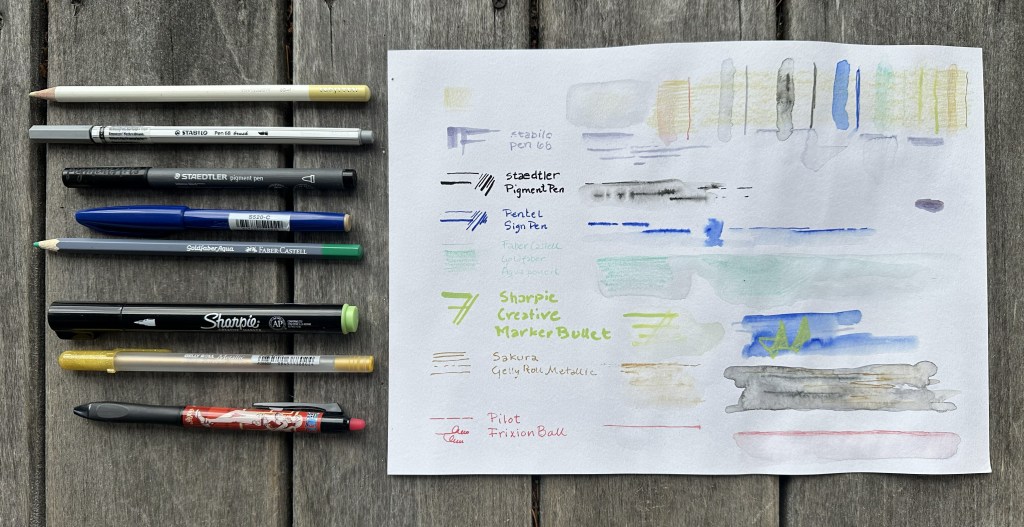 STABILO Pen 68 brush
STAEDTLER pigment pen
S520-C
Goldfaber Aqua FABER-CASTELL
Sharpie
AP
stabilo
pen 68
staedtler
Pigment Pen
Pentel
Sign Pen
Faber Castell
Goldfaber
Aquarement
Sharpie
Creative
Marker Bullet
Sakura
Gelly Roll Metallic
Pilot
Frixion Ball